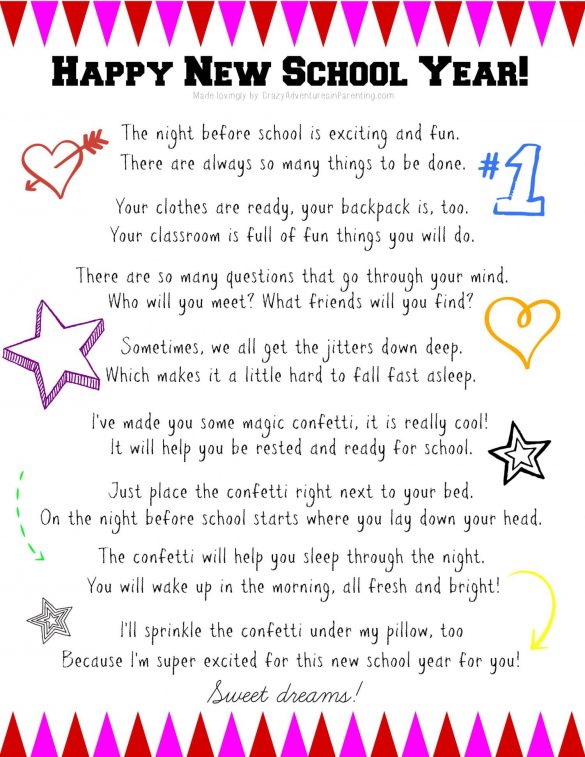 Happy New School Year!
Made lovingly by CrazyAdventuresinParenting.com
The night before school is exciting and fun.
There are always so many things to be done.
#1
Your clothes are ready, your backpack is, too.
Your classroom is full of fun things you will do.
There are so many questions that go through your mind.
Who will you meet? What friends will you find?
Sometimes, we all get the jitters down deep.
Which makes it a little hard to fall fast asleep.
I've made you some magic confetti, it is really cool!
It will help you be rested and ready for school.
Just place the confetti right next to your bed.
On the night before school starts where you lay down your head.
The confetti will help you sleep through the night.
You will wake up in the morning, all fresh and bright!
I'll sprinkle the confetti under my pillow, too
Because I'm super excited for this new school year for you!
Sweet dreams!